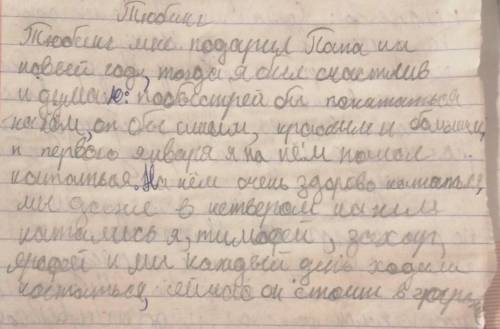 Тюбинг
Тюбинг мне подарил Папа на
новый год, тогда я был счастлив
и думаю: побыстрей бы покататься
на нём, он был синим, красным и большим,
и первого января я на нём пошол
кататься. На нём очень здорово кататься,
мы даже в четвером на нём
катались я, тимофей, захар,
ерофей и мы каждый день ходили
кататься, сейчас он стоит в